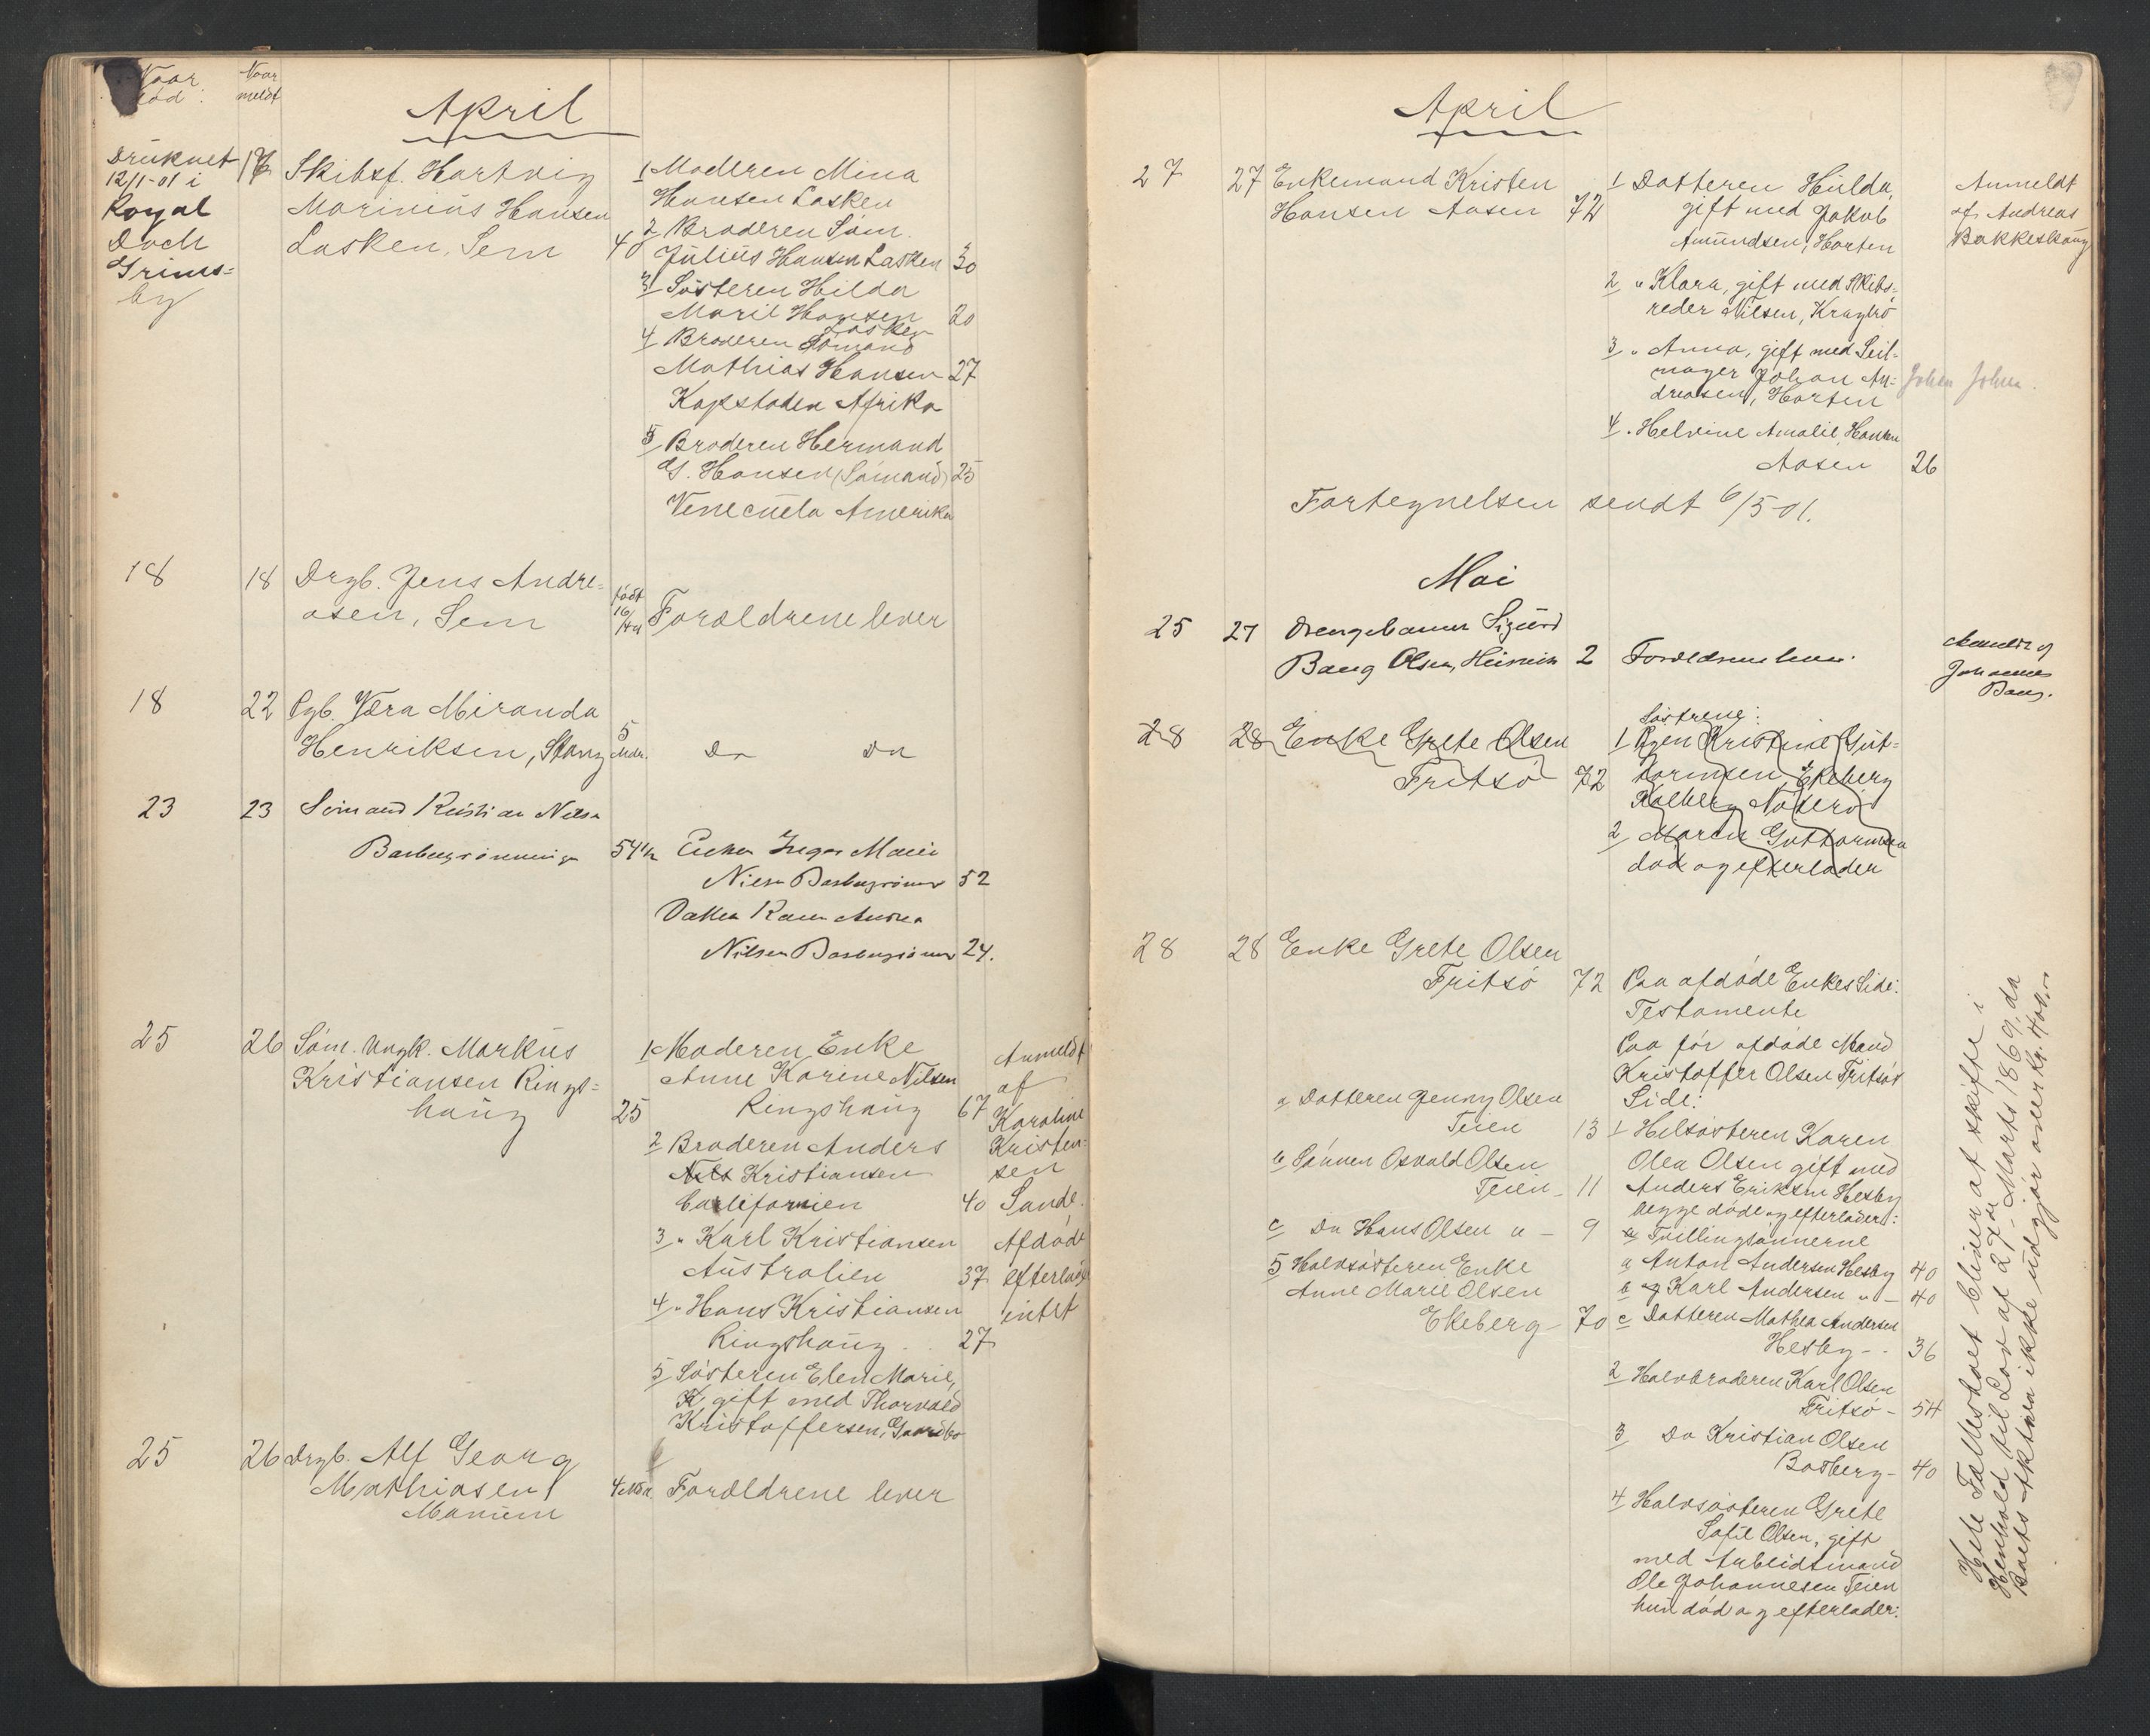 Naar død:
Naar meldt
April
Druknet 12/1-01 i Royal Doch Grims=by
17 Skibsf. Hartvig
Marinius Hansen
Lasken, Sem 40
1 Moderen Mina
Hansen Lasken
2 Broderen Søm.
Julius Hansen Lasken 30
3 Søsteren Hilda
Maril Hansen 20
Lasken
4 Broderen Sømand
Mathias Hansen 27
Kapstaden Afrika
5 Broderen Hermand
G. Hansen (Sømand) 25
Venecuela Amerika
18 18 Drgb. Jens Andre=
asen, Sem
født 16/4 01
Forældrene lever
18 22 Pgb. Væra Miranda
Henriksen, Stang 5 Mdr.
Do Do
23 23 Sømand Kristian Nilsen
54½ Enken Inger Marie
52
Datter Karen Andrea
24.
25 26 Søm. Ungk. Markus
Kristiansen Rings=
haug 25
1 Moderen Enke
Anne Karine Nilsen
Ringshaug 67
2 Broderen Anders
Nils Kristiansen
Califarnien 40
3 " Karl Kristiansen
Australien 37
4 " Hans Kristiansen
Ringshaug 27
5 Søsteren Elen Marie,
K. gift med Thorvald
Kristoffersen,
Anmeldt
af
Karoline
Kristen=
sen
Sande.
Afdøde
efterlader
intet
25 26 Drgb. Alf Georg
Mathiasen
4 Forældrene lever
April
27 27 Enkemand Kristen
Hansen Aasen 72
1 Datteren Hulda,
gift med Jakob
Amundsen, Horten
2 " Klara, gift med Skibs=
reder Nilsen, Kragerø
3 " Anna, gift med Seil=
mager Johan An=
dreasen, Horten
4 " Helvine Amalie Hansen
Aasen 26
Anmeldt
af Andreas
Bakkeskaug
Johan Johan.
Fortegnelsen sendt 6/5-01.
Mai
25 27 Drengebarn Sigurd
Baug Olsen, 2 Forældrene lever.
Anmeldt af
Johannes
Baug.
28 28 Enke Grete Olsen
Fritsø 72
Søstrene:
1 Kristine Gut=
tormsen, Ekeberg
Kalberg Nøterø
2 Maren Guttormsen
død og efterlader
28 28 Enke Grete Olsen
Fritsø 72
Paa afdøde Enkes Side:
Testamente
Paa før afdøde Mand
Kristoffer Olsen Fritsøs
Side:
1 Helsøsteren Karen
Olea Olsen gift med
Anders Eriksen Hesby
begge døde og efterlader:
Tvillingsønnerne
a Anton Andersen Hesby 40
b og Karl Andersen " - 40
c Datteren Mathea Andersen
Hesby - 36
2 Halvbroderen Karl Olsen
Fritsø - 54
3 Do Kristian Olsen
Basberg - 40
4 Halvsøsteren Grete
Sofie Olsen, gift
med Arbeidsmand
Ole Johannesen Teien
hun død og efterlader:
a Datteren Jenny Olsen
Teien 13
b Sønnen Osvald Olsen
Teien - 11
c Do Hans Olsen " - 9
5 Halvsøsteren Enke
Anne Marie Olsen
Ekeberg 70
Hele Fallesboet bliver at skifte i
Henhold til Lov af 27de Marts 1869, da
Boets Aktiva ikke udgjør over kr.